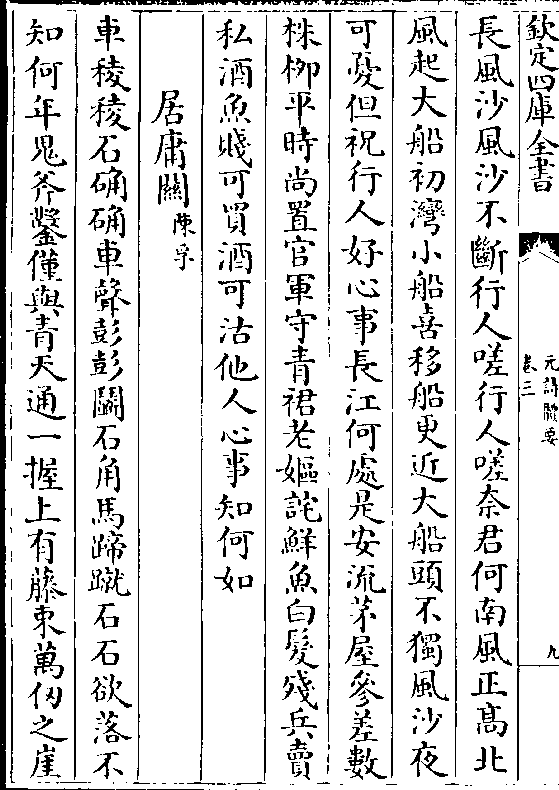 欽定四庫全書
元詩體要
卷三
九
長風沙風沙不斷行人嗟行人嗟奈君何南風正髙北
風起大船初灣小船喜移船更近大船頭不獨風沙夜
可憂但祝行人好心事長江何處是安流茅屋參差數
株栁平時尚置官軍守青裙老嫗詫鮮魚白髮殘兵賣
私酒魚賤可買酒可沽他人心事知何如
居庸關陳孚
車稜稜石确确車聲彭彭鬭石角馬蹄蹴石石欲落不
知何年鬼斧鑿僅與青天通一握上有藤束萬仞之崖